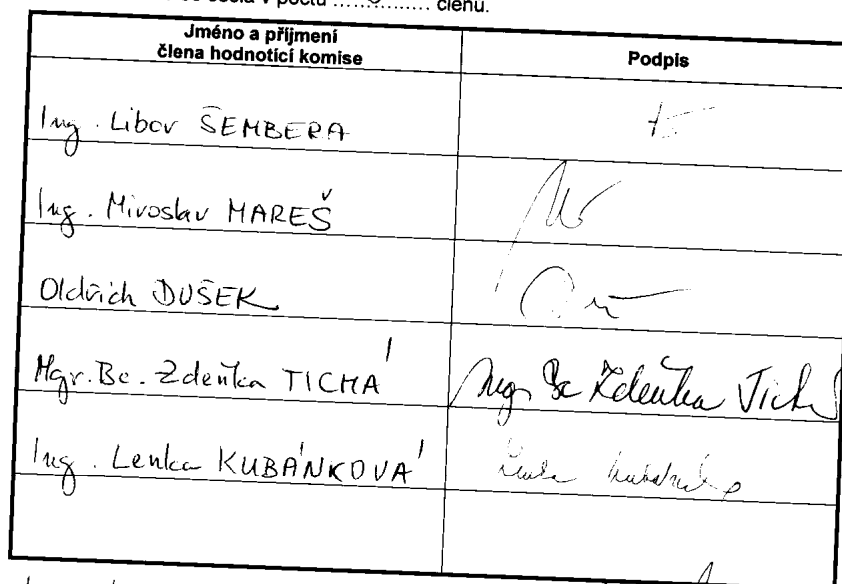 v počtu .............. členů.
Jméno a příjmení
člena hodnotící komise
Podpis
Ing. Libor ŠEMBERA
Ing. Miroslav MAREŠ
Oldřich DUŠEK
Mgr. Bc. Zdeňka TICHÁ
Mgr Bc Zdeňka Tichá
Ing. Lenka KUBÁNKOVÁ